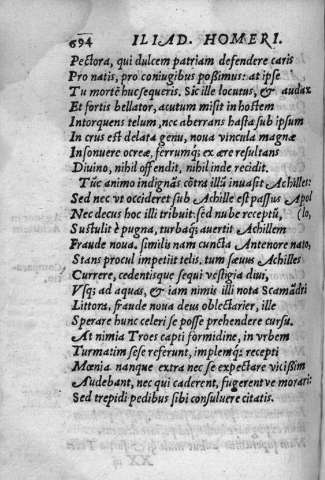 694 ILIAD. HOMERI.
Pectora, qui dulcem patriam defendere caris
Pro natis, pro coniugibus poßimus: at ipse
Tu mortē huc sequeris. Sic ille locutus, & audax
Et fortis bellator, acutum misit in hostem
Intorquens telum, nec aberrans hasta sub ipsum
In crus est delata genu, noua vincula magnæ
Insonuere ocreæ, ferrumq; ex ære resultans
Diuino, nihil offendit, nihil inde recidit.
Tūc animo indignās cōtra illū inuasit Achilles:
Sed nec vt occideret sub Achille est passus Apol
Nec decus hoc illi tribuit: sed nube receptū, (lo,
Sustulit è pugna, turbaq; auertit Achillem
Fraude noua. similis nam cuncta Antenore nato,
Stans procul impetiit telis, tum sæuus Achilles
Currere, cedentisque sequi vestigia diui,
Vsq; ad aquas, & iam nimis illi nota Scamādri
Littora, fraude noua deus oblectarier, ille
Sperare hunc celeri se posse prehendere cursu.
At nimia Troes capti formidine, in vrbem
Turmatim sese referunt, implemq; recepti
Mœnia nanque extra nec se expectare vicißim
Audebant, nec qui caderent, fugerent ve morari:
Sed trepidi pedibus sibi consuluere citatis.